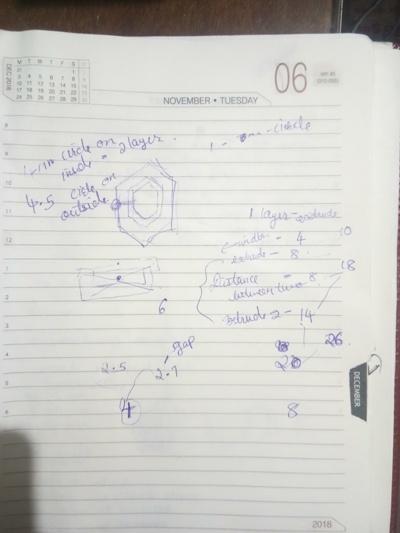 DEC 2018
M T W T F S S
31 1 2
3 4 5 6 7 8 9
10 11 12 13 14 15 16
17 18 19 20 21 22 23
24 25 26 27 28 29 30
06
NOVEMBER • TUESDAY
8
9
10
11
12
1
2
3
4
5
6
circle on
inside = 2 layer
4.5 circle on
outside
1 - circle
1 layer - extrude
width - 4 10
extrude - 8
Distance = 8 18
between two
extrude 2 - 14
6
gap
26
2.5
2.7
28
4
8
DECEMBER
2018